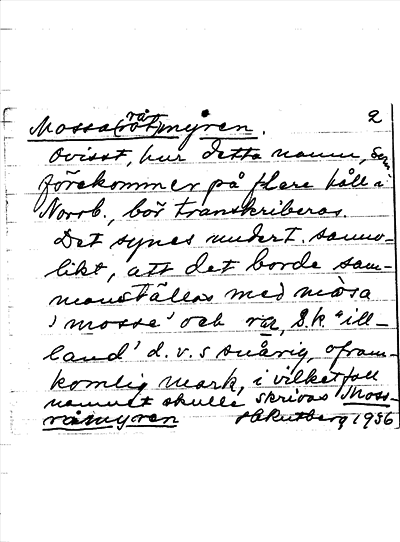 2
Mossa(rå)(röt)myren.
Ovisst, hur detta namn, som
förekommer på flere håll i
Norrb., bör transkriberas.
Det synes undert. sanno-
likt, att det borde sam-
manställas med måsa
'mosse' och rå, s.k. "ill-
land' d.v.s snårig, ofram-
komlig mark, i vilket fall
namnet skulle skrivas Moss-
råmyren Rutberg 1936